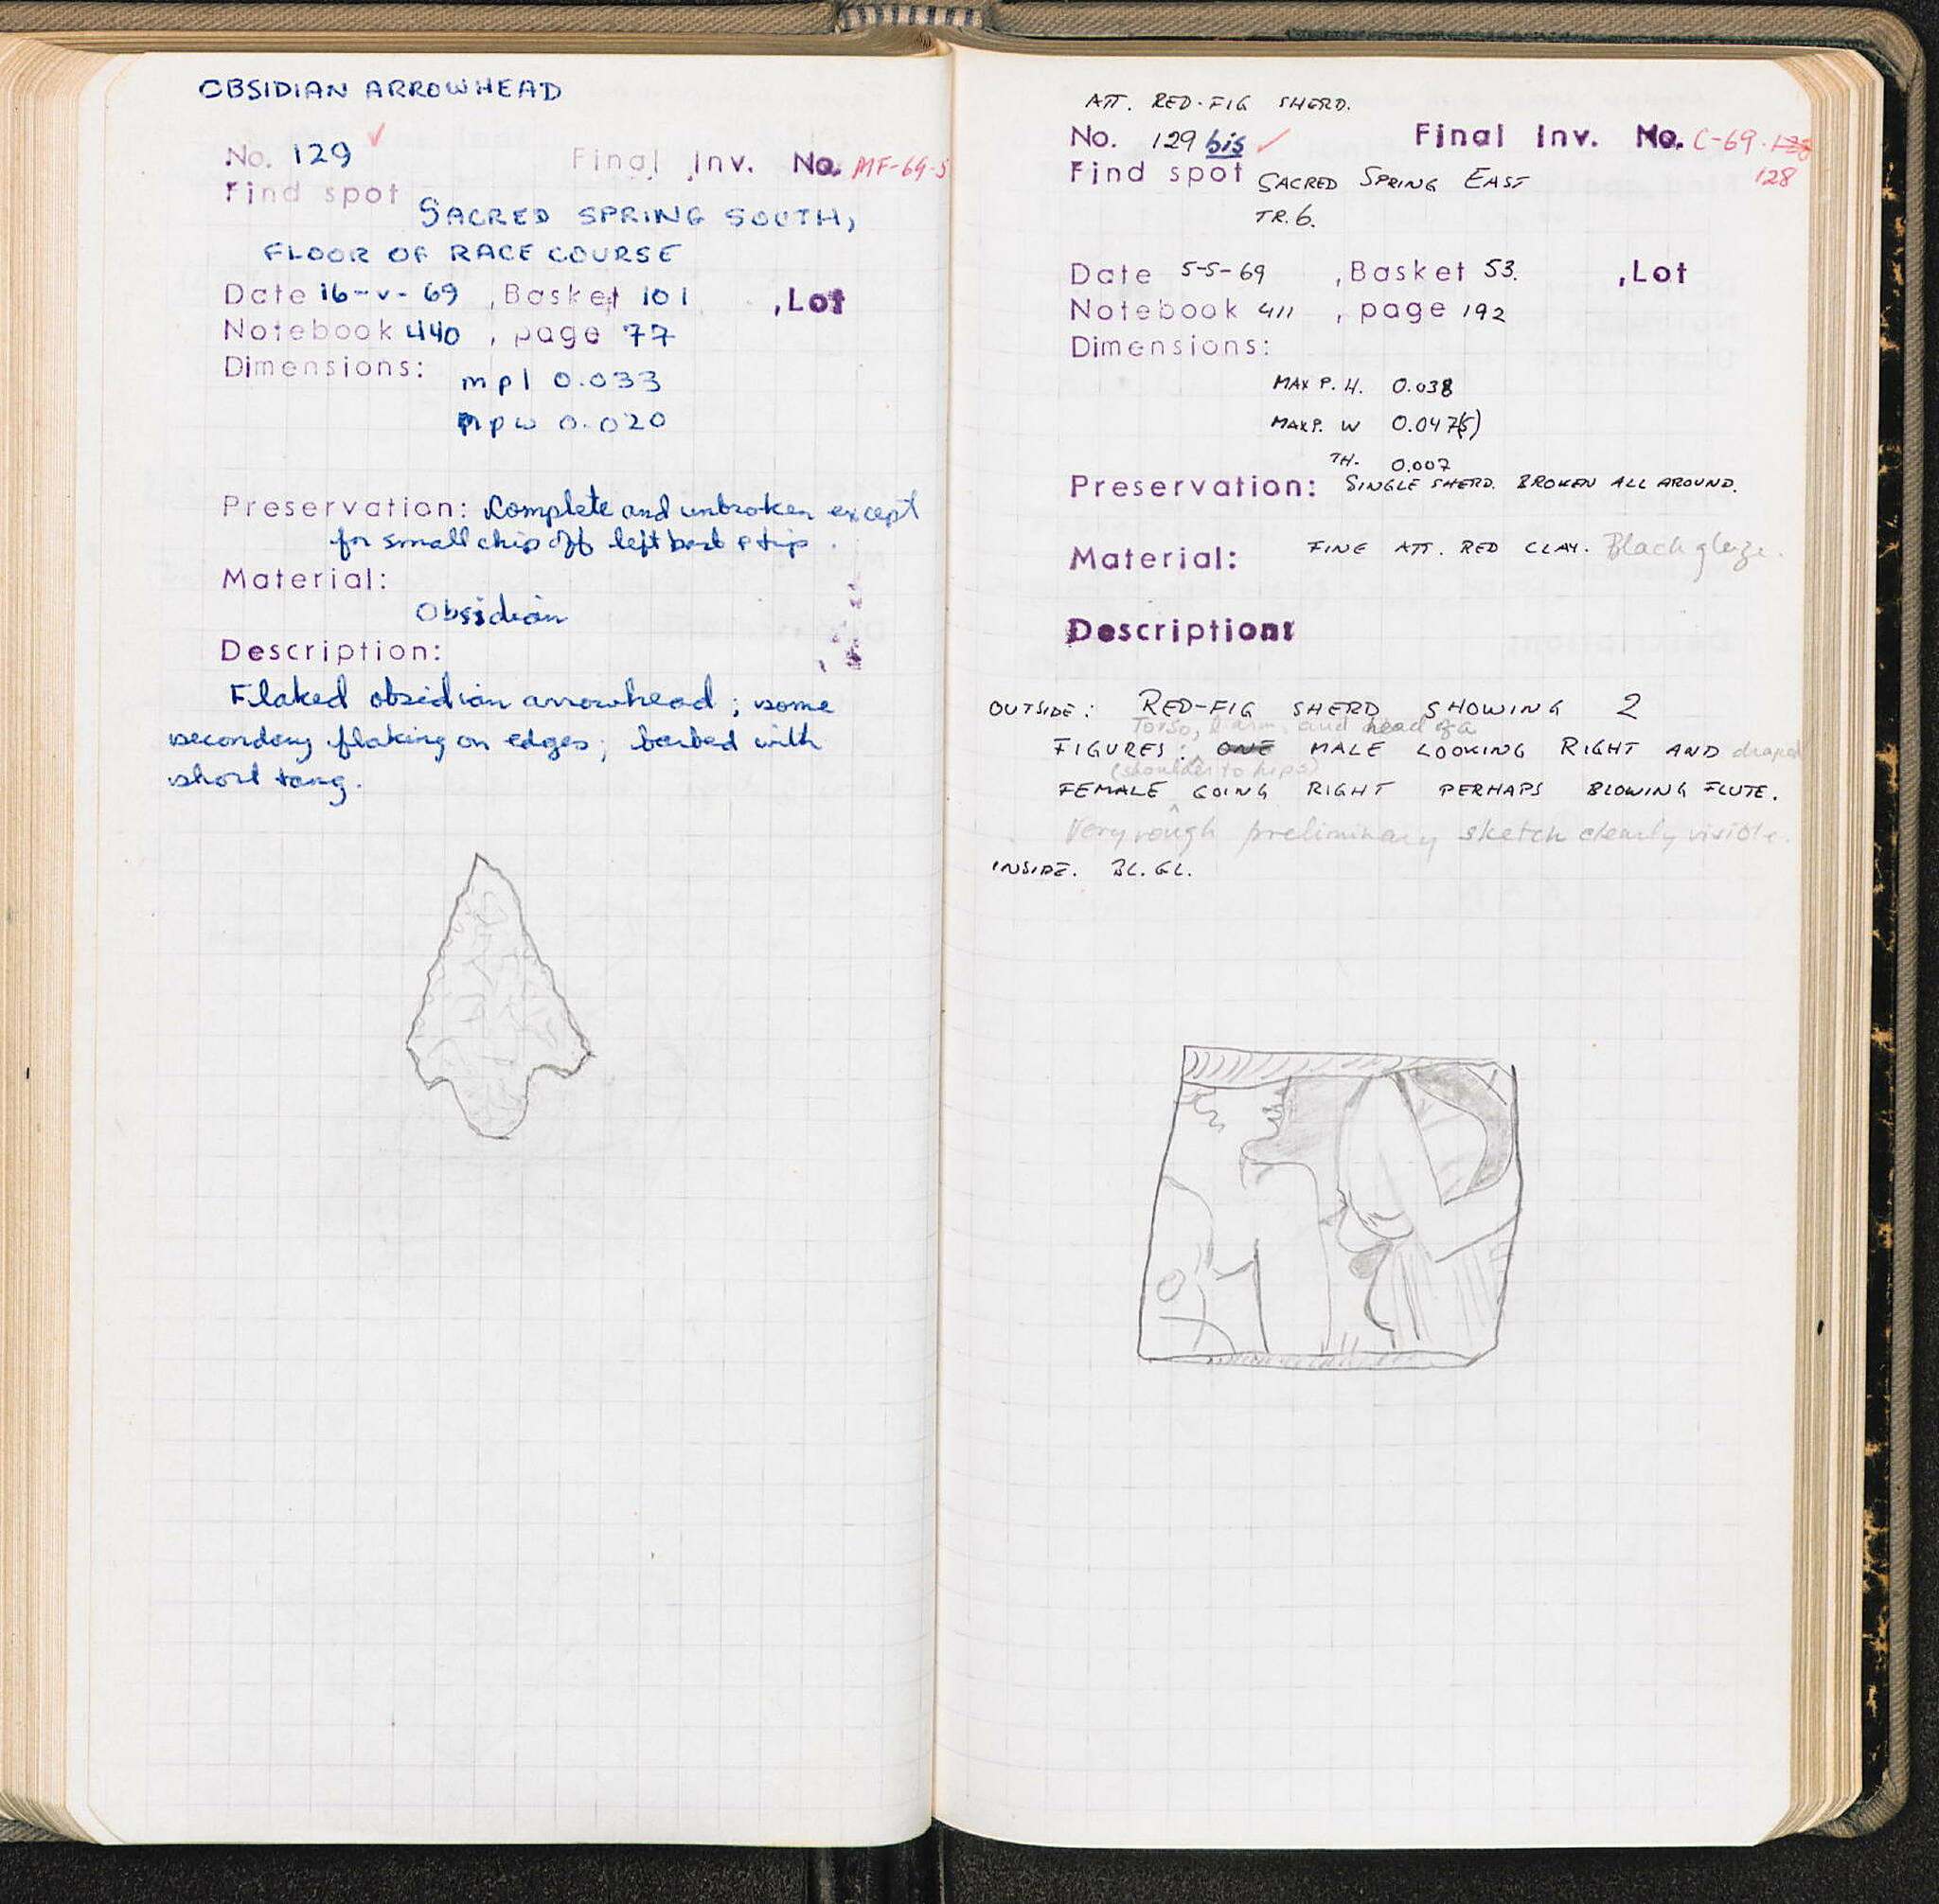 OBSIDIAN ARROWHEAD
No. 129 ✓ Final Inv. No. MF-69-5
Find spot SACRED SPRING SOUTH,
FLOOR OF RACE COURSE
Date 16-V-69 , Basket 101 , Lot
Notebook 440 , page 77
Dimensions:
mpl 0.033
mpw 0.020
Preservation: Complete and unbroken except
for small chip off left barb & tip.
Material:
Obsidian
Description:
Flaked obsidian arrowhead; some
secondary flaking on edges; barbed with
short tang.
ATT. RED-FIG SHERD.
No. 129 bis ✓ Final Inv. No. C-69-
128
Find spot SACRED SPRING EAST
TR. 6.
Date 5-5-69 , Basket 53. , Lot
Notebook 411 , page 192
Dimensions:
MAX P. H. 0.038
MAX P. W 0.047(5)
TH. 0.007
Preservation: SINGLE SHERD. BROKEN ALL AROUND.
Material: FINE ATT. RED CLAY. Black glaze.
Description:
OUTSIDE: RED-FIG SHERD SHOWING 2
Torso, arm, and head of a
FIGURES: ONE MALE LOOKING RIGHT AND draped
(shoulder to hips)
FEMALE GOING RIGHT PERHAPS BLOWING FLUTE.
Very rough preliminary sketch clearly visible.
INSIDE. BL. GL.